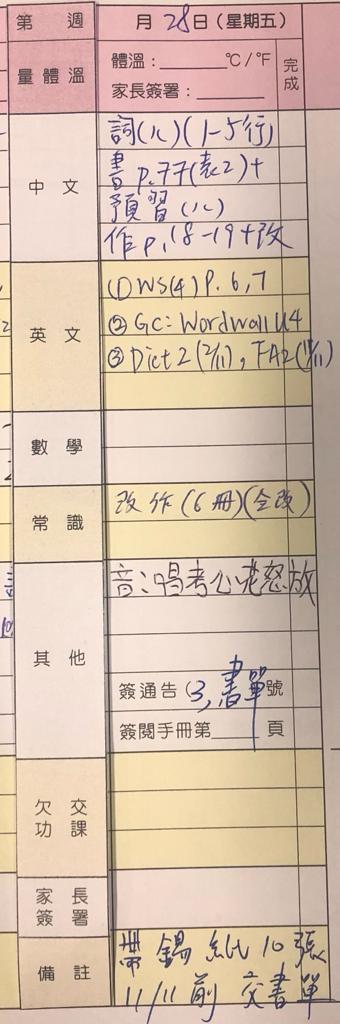 第 週 月 28 日 (星期五)
量體溫 體溫:______°C/°F 完成
家長簽署:______
中文 詞(八)(1-5行)
書 p.77(表2)+
預習(八)
作 p.18-19+改
英文 ①WS(4) P.6,7
②GC: Wordwall U4
③Dict 2 (2/11), TA2(11/11)
數學
常識 改作(6冊)(全改)
其他 音:唱考心花怒放
簽通告(3,書單號
簽閱手冊第______頁
欠交功課
家長簽署
備註 帶錫紙10張
11/11前交書單